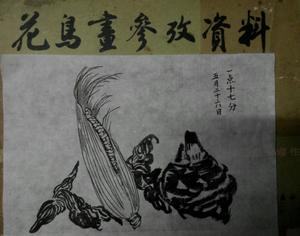 花鳥畫參攷資料
一点十七分
五月二十六日